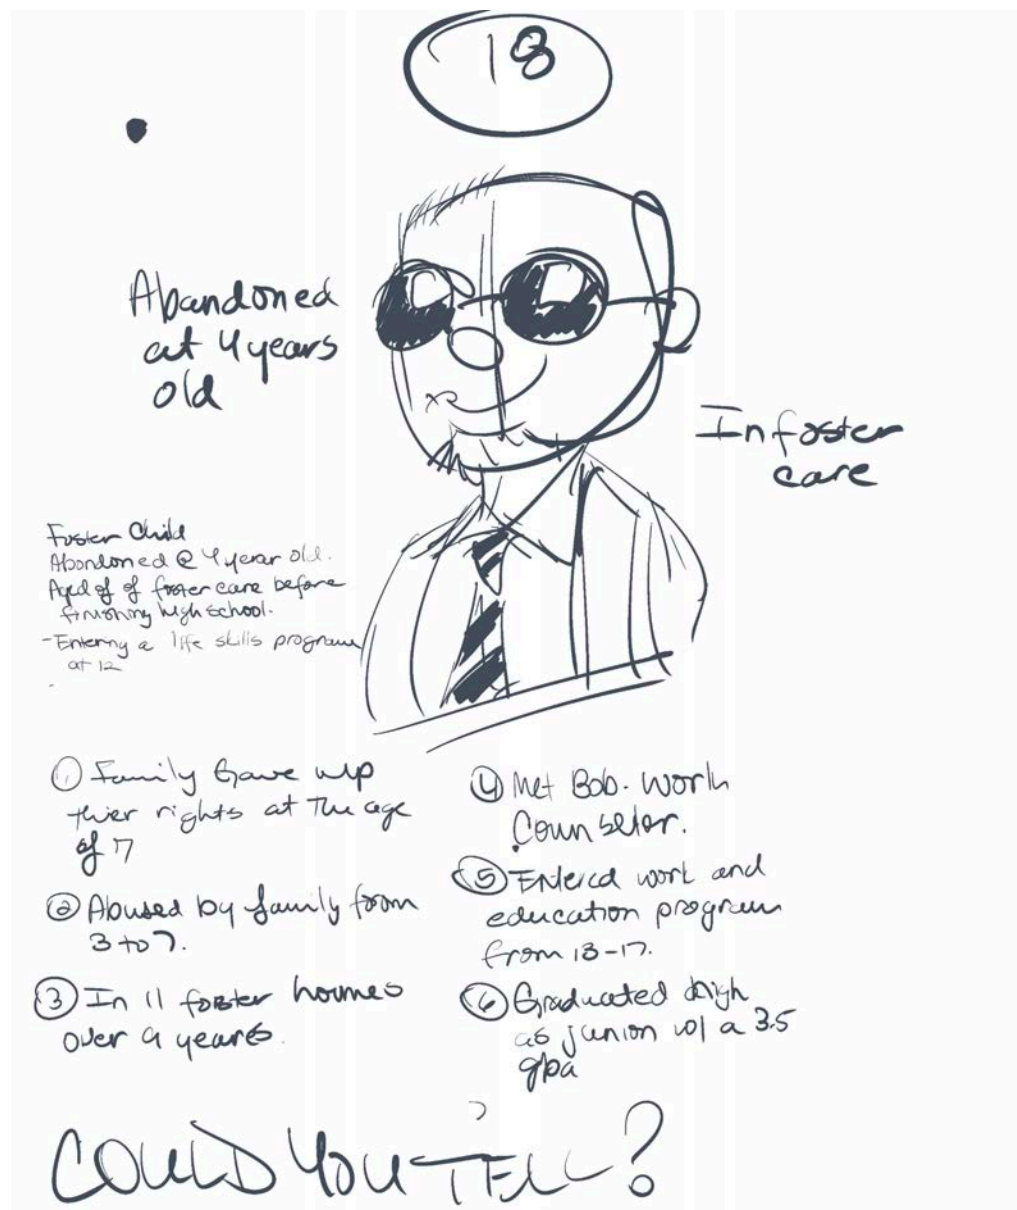 18
Abandoned
at 4 years
old
In foster
care
Foster Child
Abondoned @ 4 year old.
Aged of of foster care before
finishing high school.
-Entering a life skills program
at 12
① Family Gave up
thier rights at The age
of 7
② Abused by family from
3 to 7.
③ In 11 foster homes
over 9 years.
④ Met Bob. Work
Counselor.
⑤ Entered work and
education program
from 13-17.
⑥ Graduated high
as junion w/ a 3.5
gpa
COULD YOU TELL?